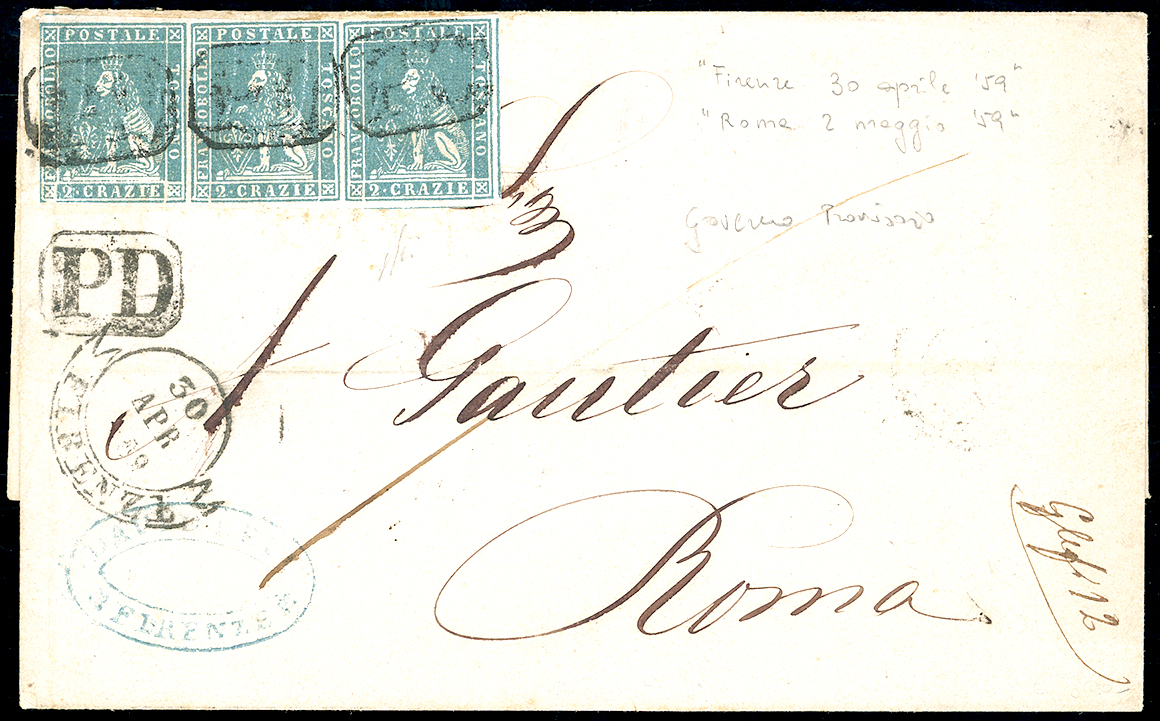 POSTALE POSTALE POSTALE
FRANCOBOLLO TOSCANO FRANCOBOLLO TOSCANO FRANCOBOLLO TOSCANO
2·CRAZIE 2·CRAZIE 2·CRAZIE
"Firenze 30 aprile '59"
"Roma 2 maggio '59"
Governo Provvisorio
PD
30
APR
59
FIRENZE
Gautier
Roma
FIRENZE